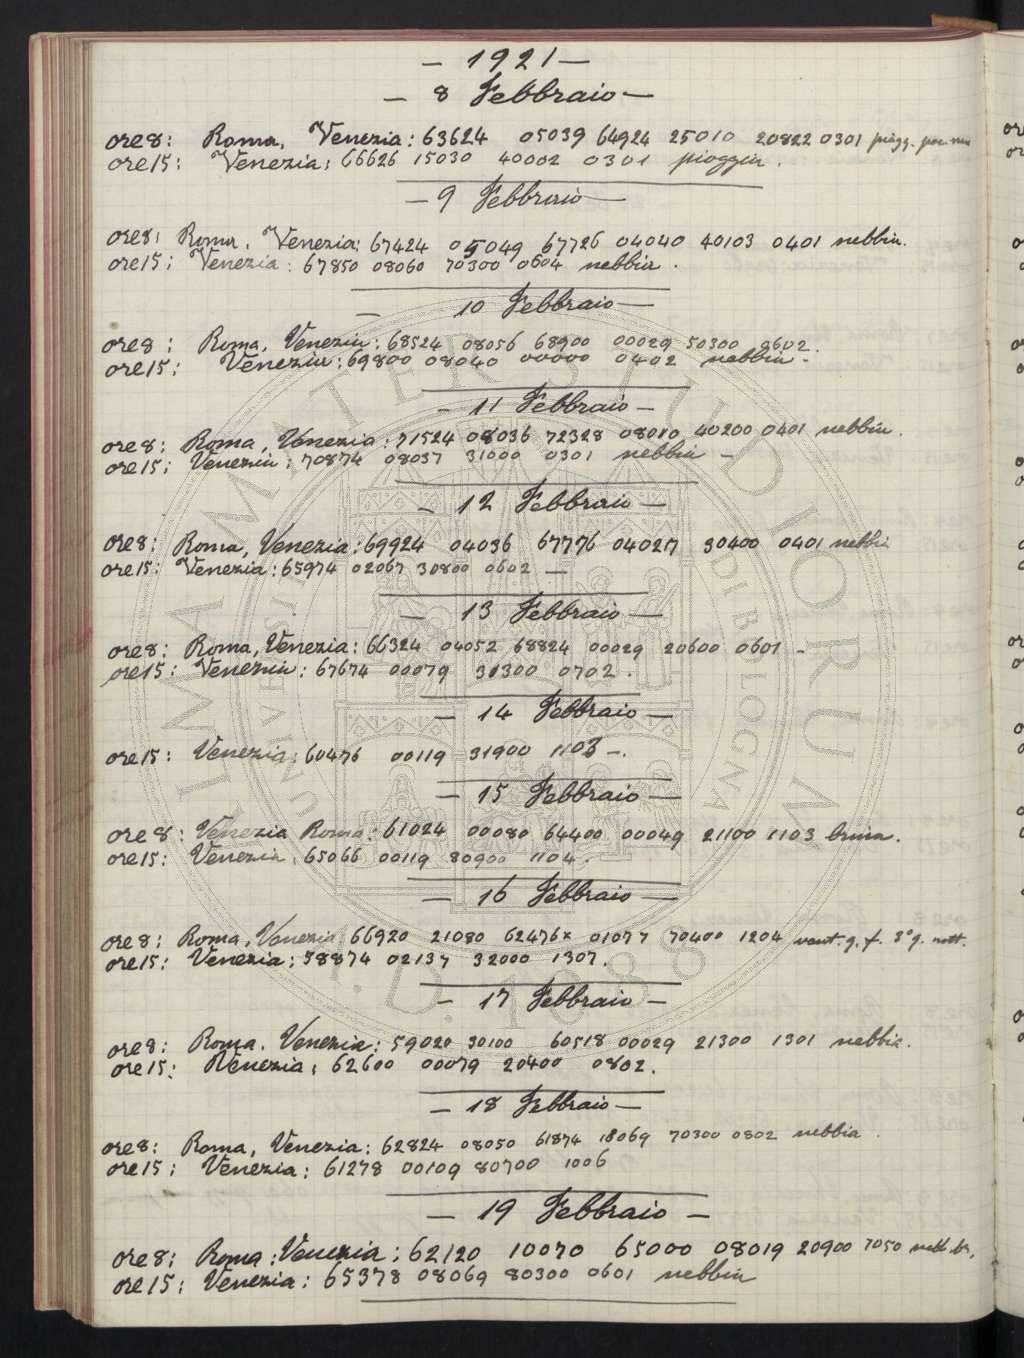 — 1921 —
— 8 Febbraio —
ore 8: Roma, Venezia: 63624 05039 64924 25010 20822 0301 piogg.
ore 15: Venezia: 66626 15030 40002 0301 pioggia.
— 9 Febbraio —
ore 8: Roma, Venezia: 67424 05049 67726 04040 40103 0401 nebbia.
ore 15: Venezia: 67850 08060 70300 0604 nebbia.
— 10 Febbraio —
ore 8: Roma, Venezia: 68524 08056 68900 00029 50300 0602.
ore 15: Venezia: 69800 08040 00000 0402 nebbia -
— 11 Febbraio —
ore 8: Roma, Venezia: 71524 08036 72328 08010 40200 0401 nebbia.
ore 15: Venezia: 70874 08037 31000 0301 nebbia —
— 12 Febbraio —
ore 8: Roma, Venezia: 69924 04036 67776 04027 30400 0401 nebbia
ore 15: Venezia: 65974 02067 30800 0602 —
— 13 Febbraio —
ore 8: Roma, Venezia: 66324 04052 68824 00029 20600 0601 -
ore 15: Venezia: 67674 00079 31300 0702.
— 14 Febbraio —
ore 15: Venezia: 60476 00119 31900 1103 —.
— 15 Febbraio —
ore 8: Venezia Roma: 61024 00080 64400 00049 21100 1103 brina.
ore 15: Venezia: 65066 00119 80900 1104.
— 16 Febbraio —
ore 8: Roma, Venezia: 66920 21080 62476x 01077 70400 1204 vent. g. f. 3° g. nott.
ore 15: Venezia: 58874 02137 32000 1307.
— 17 Febbraio —
ore 8: Roma, Venezia: 59020 30100 60518 00029 21300 1301 nebbia.
ore 15: Venezia: 62600 00079 20400 0802.
— 18 Febbraio —
ore 8: Roma, Venezia: 62824 08050 61874 18069 70300 0802 nebbia.
ore 15: Venezia: 61278 00109 80700 1006
— 19 Febbraio —
ore 8: Roma: Venezia: 62120 10070 65000 08019 20900 7050
ore 15: Venezia: 65378 08069 80300 0601 nebbia
ALMA MATER STUDIORUM
UNIVERSITÀ DI BOLOGNA
A.D. 1088